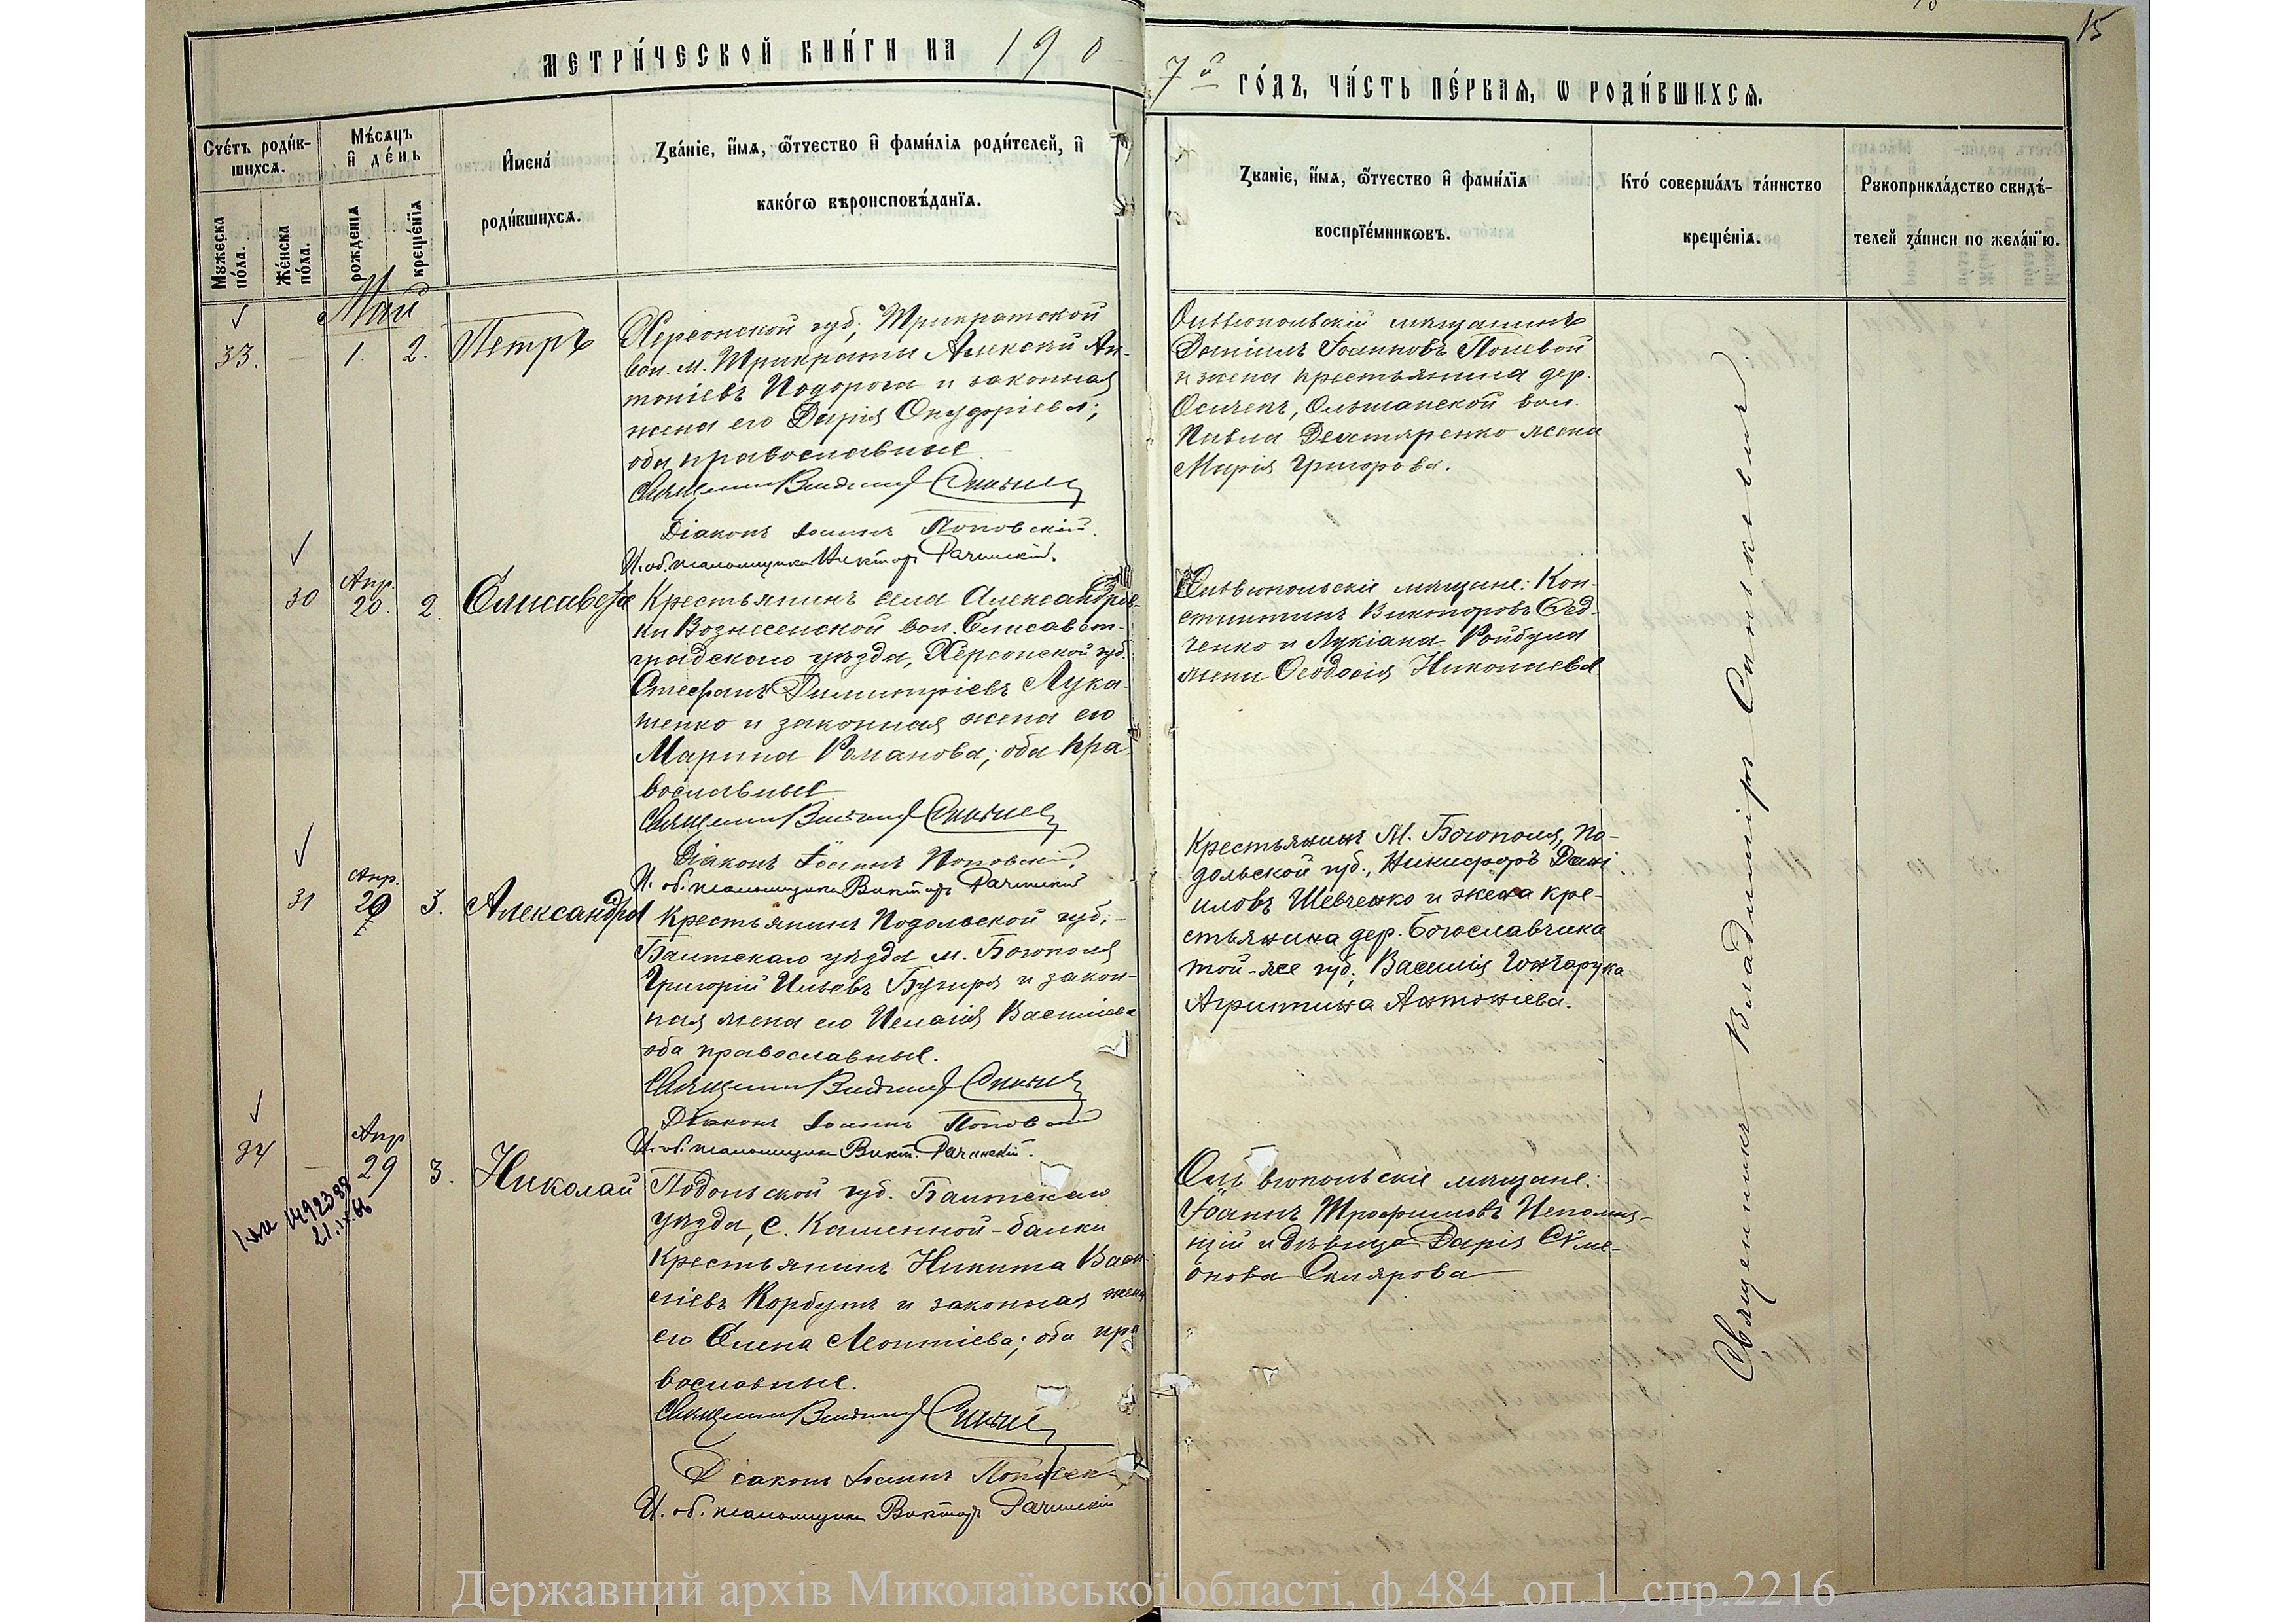 МЕТРИ́ЧЕСКОЙ КНИ́ГИ НА 190
7й ГО́ДЪ, ЧА́СТЬ ПЕ́РВАѦ, Ѡ РОДИ́ВШИХСѦ.
15
Сче́тъ роди́в-
шихсѧ.
Мꙋжеска
по́ла.
Же́нска
по́ла.
Мѣ́сѧцъ
и҆ де́нь
рожденїѧ
креще́нїѧ
И҆мена́
роди́вшихсѧ.
Зва́нїе, и҆́мѧ, ѻ҆́тчество и҆ фами́лїѧ роди́телей, и҆
како́гѡ вѣроисповѣ́данїѧ.
Званїе, и҆́мѧ, ѻ҆́тчество и҆ фами́лїѧ
воспрїе́мникѡвъ.
Кто́ соверша́лъ та́инство
креще́нїѧ.
Рꙋкоприкла́дство свидѣ́-
телей за́писи по жела́нїю.
Май
33. — 1. 2. Петръ
Херсонской губ., Трикратской
вол. м. Трикраты Алексій Ан-
тоніевъ Подорога и законная
жена его Дарія
оба православные
Священникъ Владимір Синькевич
Діаконъ Іоаннъ Поповскій.
И. об. псаломщика Виктор Рачинскій.
Ольвіопольскій мѣщанинъ
Даніилъ Іоанновъ Полевой
и жена крестьянина дер.
Осичекъ, Ольшанской вол.
Павла Дехтяренко жена
Марія Григорова.
30 Апр. 20. 2. Елисавета
Крестьянинъ села Александров-
ки Вознесенской вол. Елисавет-
градскаго уѣзда, Херсонской губ.
Стефанъ Димитріевъ Лука-
шенко и законная жена его
Марина Романова; оба пра-
вославные
Священникъ Владимір Синькевич
Діаконъ Іоаннъ Поповскій.
И. об. псаломщика Виктор Рачинскій
Ольвіопольскіе мѣщане: Кон-
стантинъ Викторовъ Фед-
ченко и Лукіана Ройбула
жена Ѳеодосія Николаева
31 Апр. 29 3. Александра
Крестьянинъ Подольской губ.,
Балтскаго уѣзда м. Богополя
Григорій Ильевъ Бугира и закон-
ная жена его Пелагія Василіева
оба православные.
Священникъ Владимір Синькевич
Діаконъ Іоаннъ Поповскій
И. об. псаломщика Викт. Рачинскій.
Крестьянинъ М. Богополя, По-
дольской губ., Никифоръ Дані-
иловъ Шевченко и жена кре-
стьянина дер. Богославчика
той-же губ., Василія Гончарука
Агриппина Антоніева.
34 — Апр 29 3. Николай
1492388
21.IX.66
Подольской губ. Балтскаго
уѣзда, с. Каменной-балки
крестьянинъ Никита Васи-
ліевъ Корбутъ и законная жена
его Елена Леонтіева; оба пра
вославные.
Священникъ Владимір Синькевич
Діаконъ Іоаннъ Поповск
И. об. псаломщика Виктор Рачинскій
Ольвіопольскіе мѣщане:
Іоаннъ Трофимовъ Непомня-
щій и дѣвица Дарія Симе-
онова Склярова
Священникъ Владиміръ Синькевичъ
Державний архів Миколаївської області, ф.484, оп.1, спр.2216